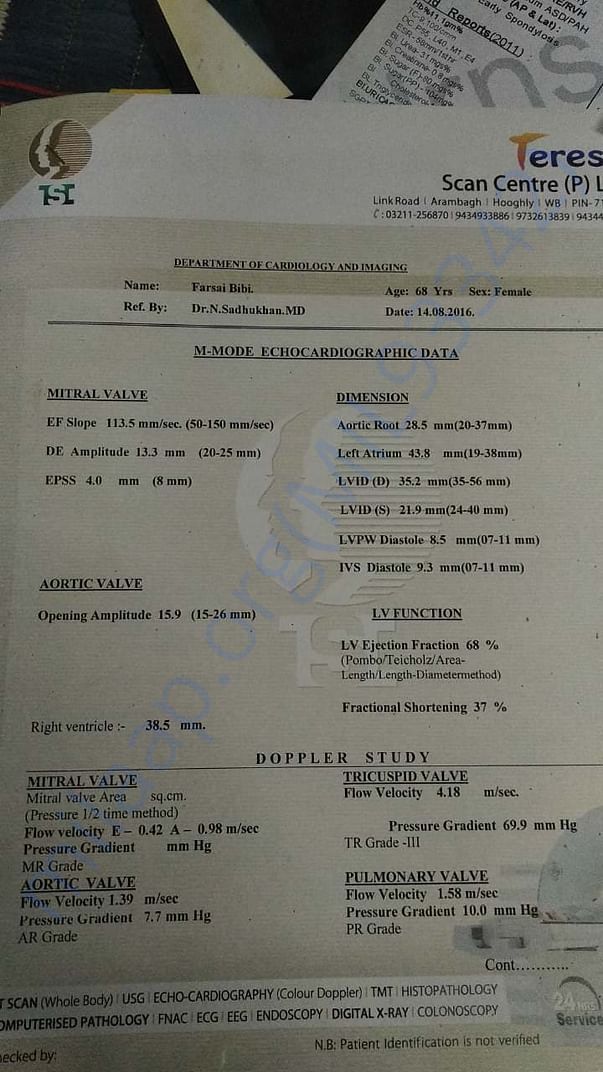 /RVH
(AP & Lat):
ASD/PAH
Early Spondylosis
Reports(2011) :
Hb%11.1gm%
DC-P55, L40, M1, E4
Bl. Urea-31 mgs%
Bl. Creatinine-0.8 mgs%
Bl. Sugar (F)-80 mgs%
Bl. Sugar(PP)-104mgs%
Cholesterol
ns
TSI
Teres
Scan Centre (P) L
Link Road | Arambagh | Hooghly | WB | PIN- 71
✆ : 03211-256870 | 9434933886 | 9732613839 | 94344
DEPARTMENT OF CARDIOLOGY AND IMAGING
Name: Farsai Bibi. Age: 68 Yrs Sex: Female
Ref. By: Dr.N.Sadhukhan.MD Date: 14.08.2016.
M-MODE ECHOCARDIOGRAPHIC DATA
MITRAL VALVE
EF Slope 113.5 mm/sec. (50-150 mm/sec)
DE Amplitude 13.3 mm (20-25 mm)
EPSS 4.0 mm (8 mm)
AORTIC VALVE
Opening Amplitude 15.9 (15-26 mm)
Right ventricle :- 38.5 mm.
DIMENSION
Aortic Root 28.5 mm(20-37mm)
Left Atrium 43.8 mm(19-38mm)
LVID (D) 35.2 mm(35-56 mm)
LVID (S) 21.9 mm(24-40 mm)
LVPW Diastole 8.5 mm(07-11 mm)
IVS Diastole 9.3 mm(07-11 mm)
LV FUNCTION
LV Ejection Fraction 68 %
(Pombo/Teicholz/Area-
Length/Length-Diametermethod)
Fractional Shortening 37 %
TSI
DOPPLER STUDY
MITRAL VALVE
Mitral valve Area sq.cm.
(Pressure 1/2 time method)
Flow velocity E – 0.42 A – 0.98 m/sec
Pressure Gradient mm Hg
MR Grade
AORTIC VALVE
Flow Velocity 1.39 m/sec
Pressure Gradient 7.7 mm Hg
AR Grade
TRICUSPID VALVE
Flow Velocity 4.18 m/sec.
Pressure Gradient 69.9 mm Hg
TR Grade -III
PULMONARY VALVE
Flow Velocity 1.58 m/sec
Pressure Gradient 10.0 mm Hg
PR Grade
Cont...........
T SCAN (Whole Body) | USG | ECHO-CARDIOGRAPHY (Colour Doppler) | TMT | HISTOPATHOLOGY
OMPUTERISED PATHOLOGY | FNAC | ECG | EEG | ENDOSCOPY | DIGITAL X-RAY | COLONOSCOPY
24 HRS
Service
ecked by:
N.B: Patient Identification is not verified